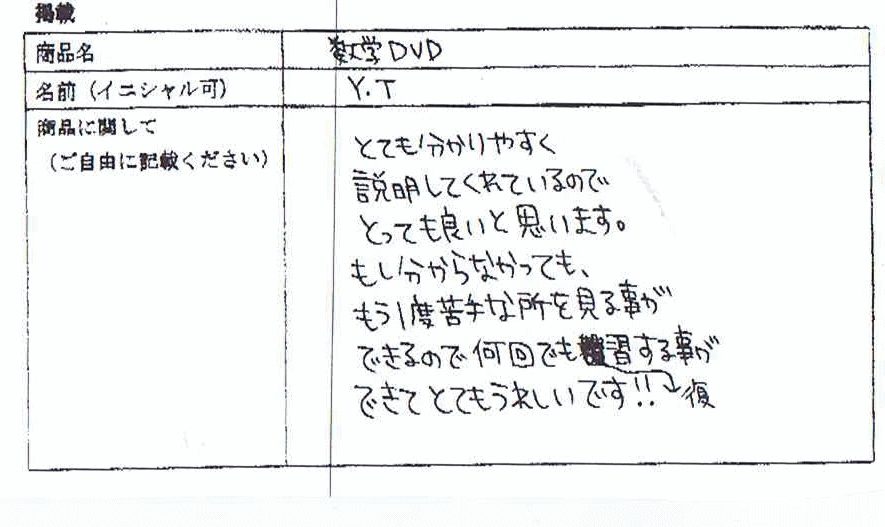 掲載
商品名 数学DVD
名前（イニシャル可） Y.T
商品に関して
（ご自由に記載ください）
とても分かりやすく
説明してくれているので
とっても良いと思います。
もし分からなくても、
もう1度苦手な所を見る事が
できるので何回でも習する事が
できてとてもうれしいです!! 復